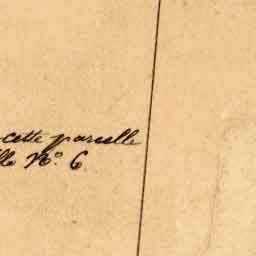 cette parcelle
lle No. 6